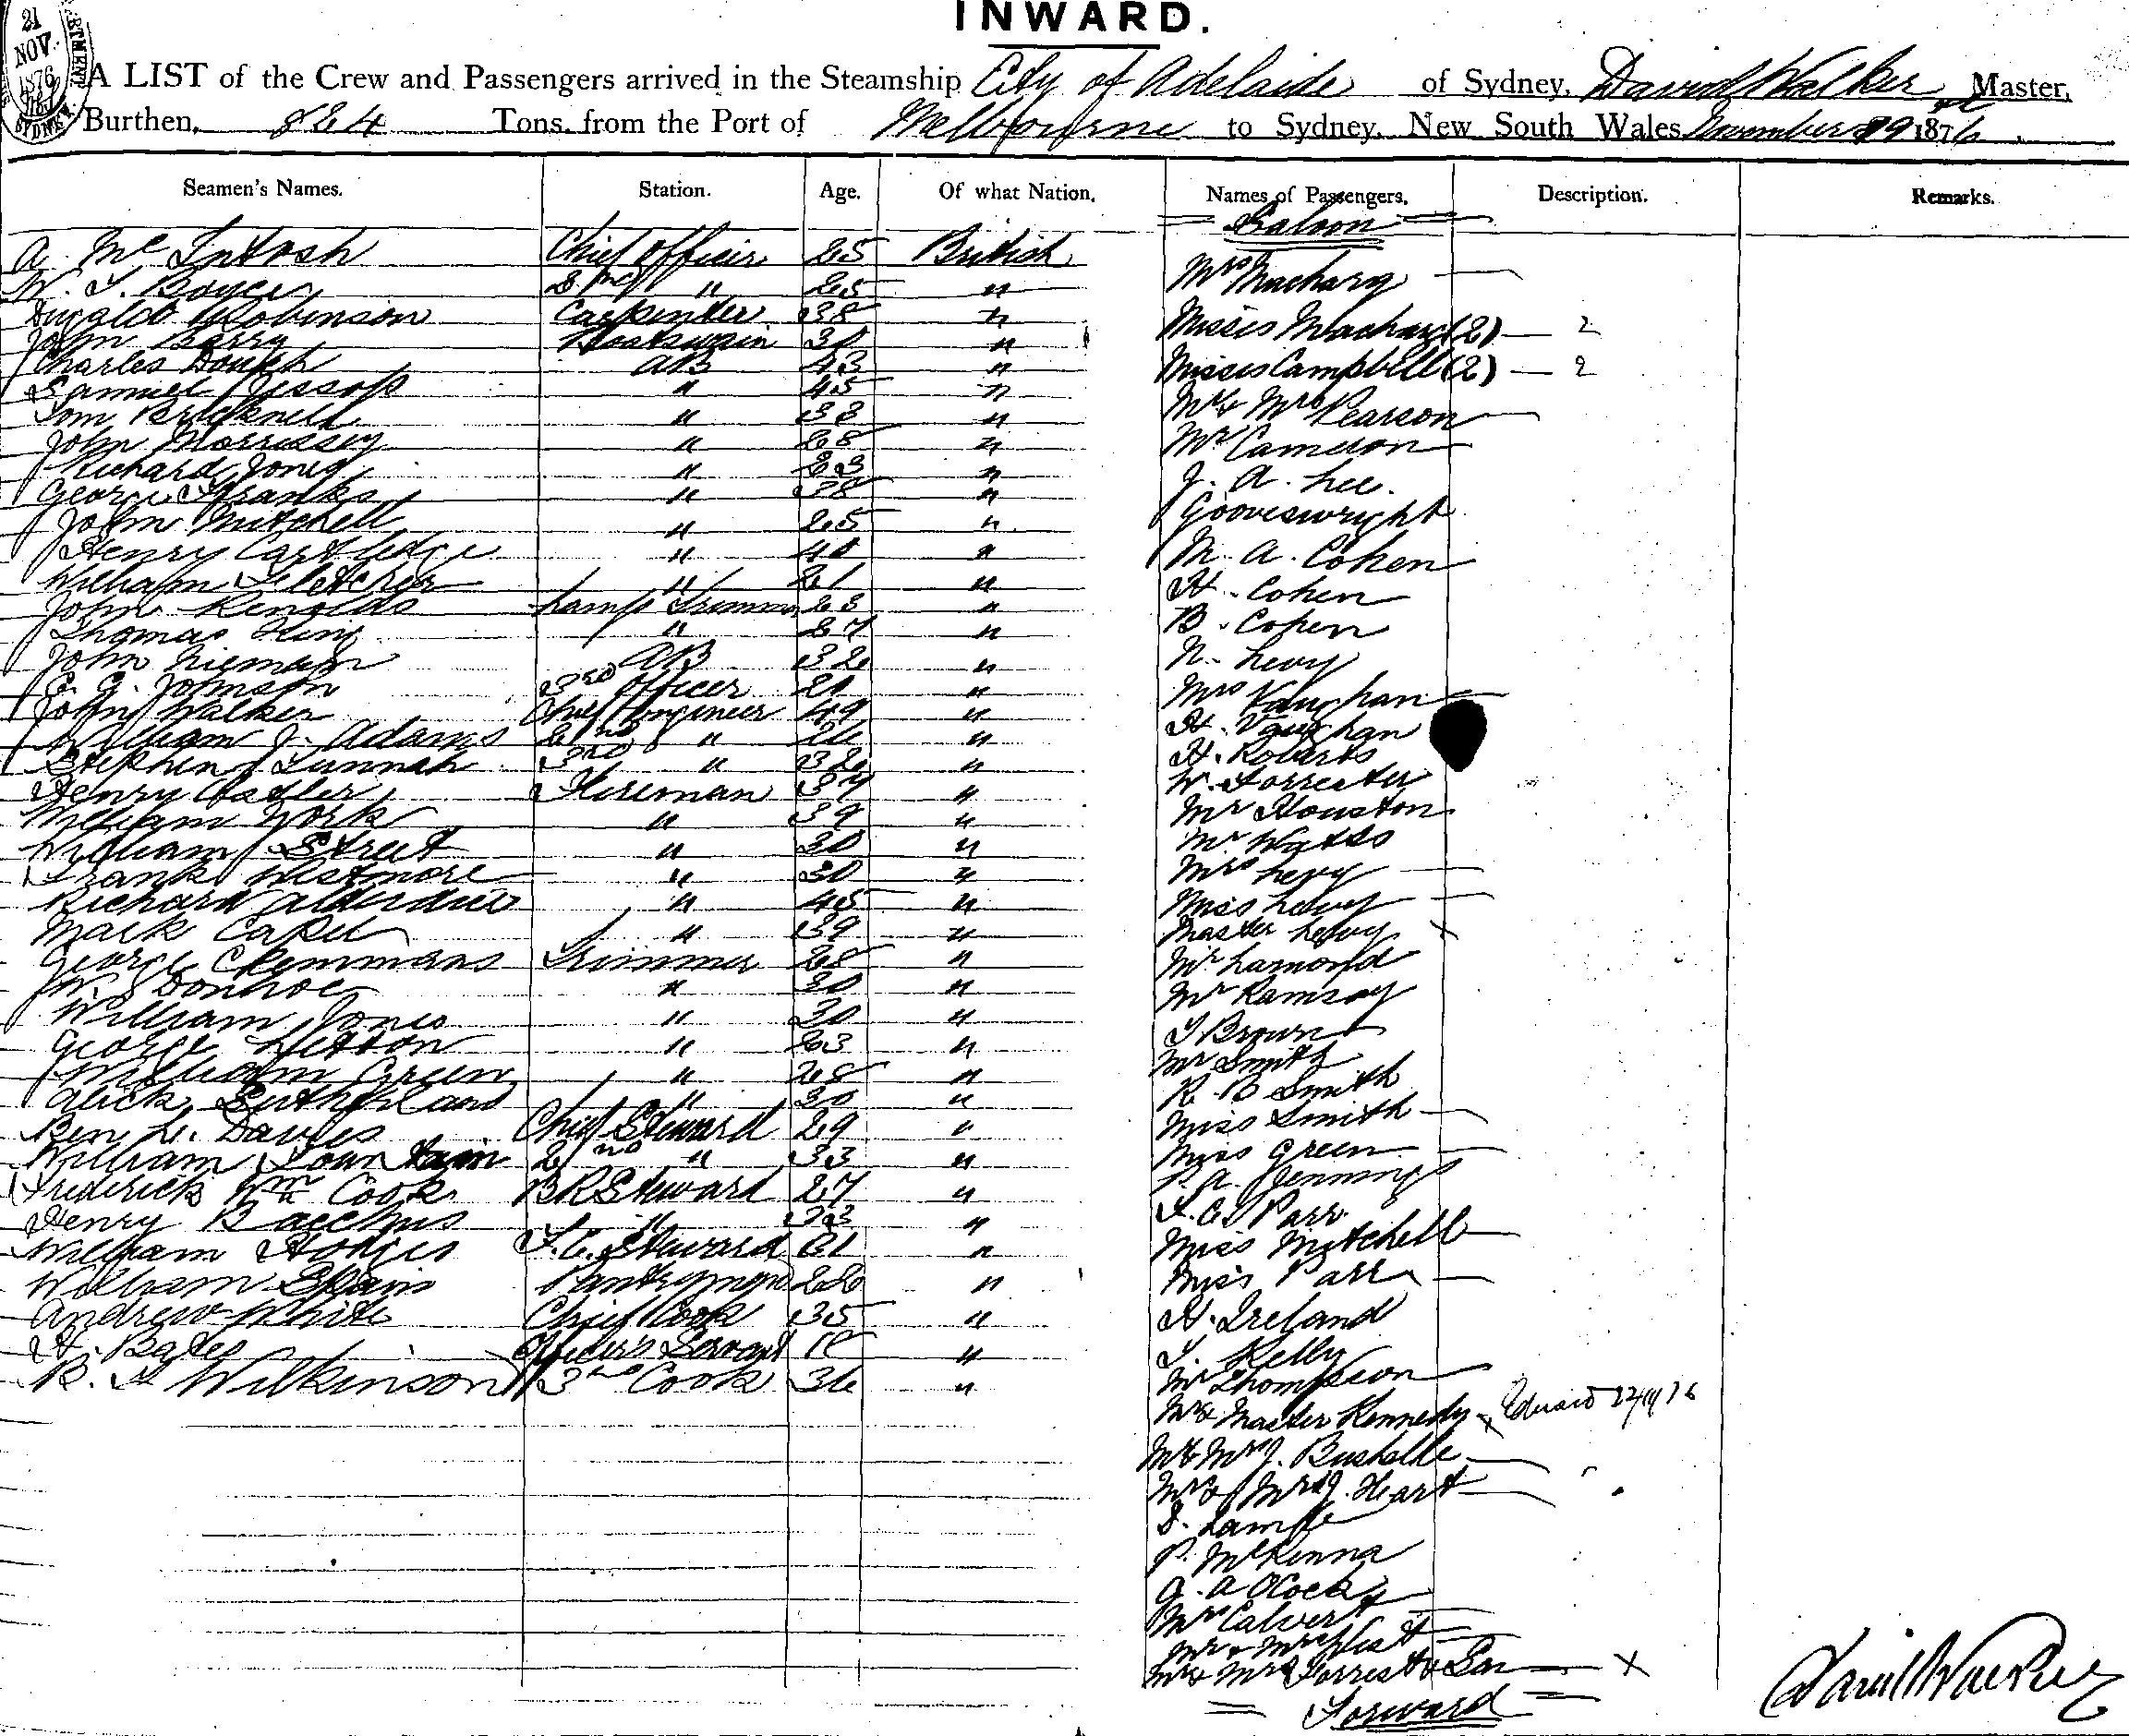 INWARD.
21
NOV.
1876
SYDNEY
A LIST of the Crew and Passengers arrived in the Steamship City of Adelaide of Sydney, David Walker Master,
Burthen, 824 Tons, from the Port of Melbourne to Sydney, New South Wales November 1876
Seamen's Names. Station. Age. Of what Nation. Names of Passengers. Description. Remarks.
Saloon
A. McIntosh Chief Officer 25 British
W. J. Boyce 2nd " 25 "
Dugald Robinson Carpenter 38 "
John Barry Boatswain 30 "
Charles Dough AB 43 "
Samuel Jessop " 45 "
Tom Bricknell " 33 "
John Morrissey " 28 "
Richard Jones " 23 "
George Franks " 38 "
John Mitchell " 25 "
Henry Cartledge " 40 "
William Fletcher " 21 "
John Renolds Lamp Trimmer 23 "
Thomas King " 27 "
John Niemann AB 32 "
E. G. Johnson 3rd Officer 21 "
John Walker Chief Engineer 49 "
William J. Adams 2nd " 26 "
Stephen Tunnah 3rd " 32 "
Henry Sadler Fireman 37 "
William York " 39 "
William Street " 30 "
Frank Westmore " 30 "
Richard " 45 "
Mark Capel " 39 "
George Clemmans Trimmer 28 "
W. Donhoe " 30 "
William Jones " 30 "
George Letton " 23 "
William Green " 28 "
Alick Sutherland " 30 "
Ben L. Davies Chief Steward 29 "
William Fountain 2nd " 33 "
Frederick Wm Cook BR Steward 27 "
Henry Bacchus " 23 "
William Hodges F.C. Steward 21 "
William Spain Pantryman 22 "
Andrew White Chief Cook 35 "
H. Bates Officer's Servant "
R. H Wilkinson Cook 36 "
Mrs Macharg
Misses Macharg (2) — 2
Misses Campbell (2) — 2
Mr & Mrs Pearson
Mr Cameron
J. A. Lee.
Gooveswright
M. A. Cohen
H. Cohen
B. Cohen
N. Levy
Mrs Vaughan
H. Vaughan
H. Roberts
W. Forrester
Mr Houston
Mr Watts
Mrs Levy
Miss Levy
Master Levy x
Mr Lamond
Mr Ramsay
T Brown
Mr Smith
R. B Smith
Miss Smith
Miss Green
P. A. Jennings
Parr
Miss Mitchell
Miss Parr
H. Ireland
T. Kelly
Mr Thompson
Mr & Master Kennedy x
Mr & Mrs J. Bushelle
Mr & Mrs J. Heart
S. Lampe
P. McKenna
G. A OCock
Mr Calvert
Mr & Mrs West
Mr & Mrs Forrest & Son — x
Forward
David Walker